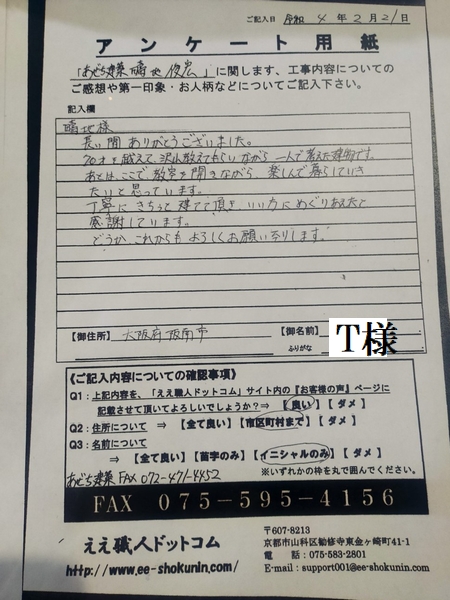 ご記入日 令和 4 年 2 月 21 日
アンケート用紙
「あどち建築 晴地 俊宏」に関します、工事内容についての
ご感想や第一印象・お人柄などについてご記入下さい。
記入欄
晴地様
長い間ありがとうございました。
70才を越えて、沢山教えてもらいながら 一人で考えた建物です。
あとは、ここで教室を開きながら、楽しんで暮らしていき
たいと思っています。
丁寧にきちっと建てて頂き、いい方にめぐりあえたと
感謝しています。
どうか、これからもよろしくお願い致します。
【御住所】 大阪府阪南市
【御名前】 T様
ふりがな
《ご記入内容についての確認事項》
Q1:上記内容を、「ええ職人ドットコム」サイト内の『お客様の声』ページに
記載させて頂いてよろしいでしょうか?⇒【 良い 】【 ダメ 】
Q2:住所について ⇒ 【全て良い】【市区町村まで】【 ダメ 】
Q3:名前について
⇒ 【全て良い】【苗字のみ】【イニシャルのみ】【 ダメ 】
あどち建築 FAX 072-471-4452
※いずれかの枠を丸で囲んでください。
FAX 075-595-4156
ええ職人ドットコム
http://www.ee-shokunin.com/
〒607-8213
京都市山科区勧修寺東金ヶ崎町41-1
電 話:075-583-2801
E-mail:support001@ee-shokunin.com